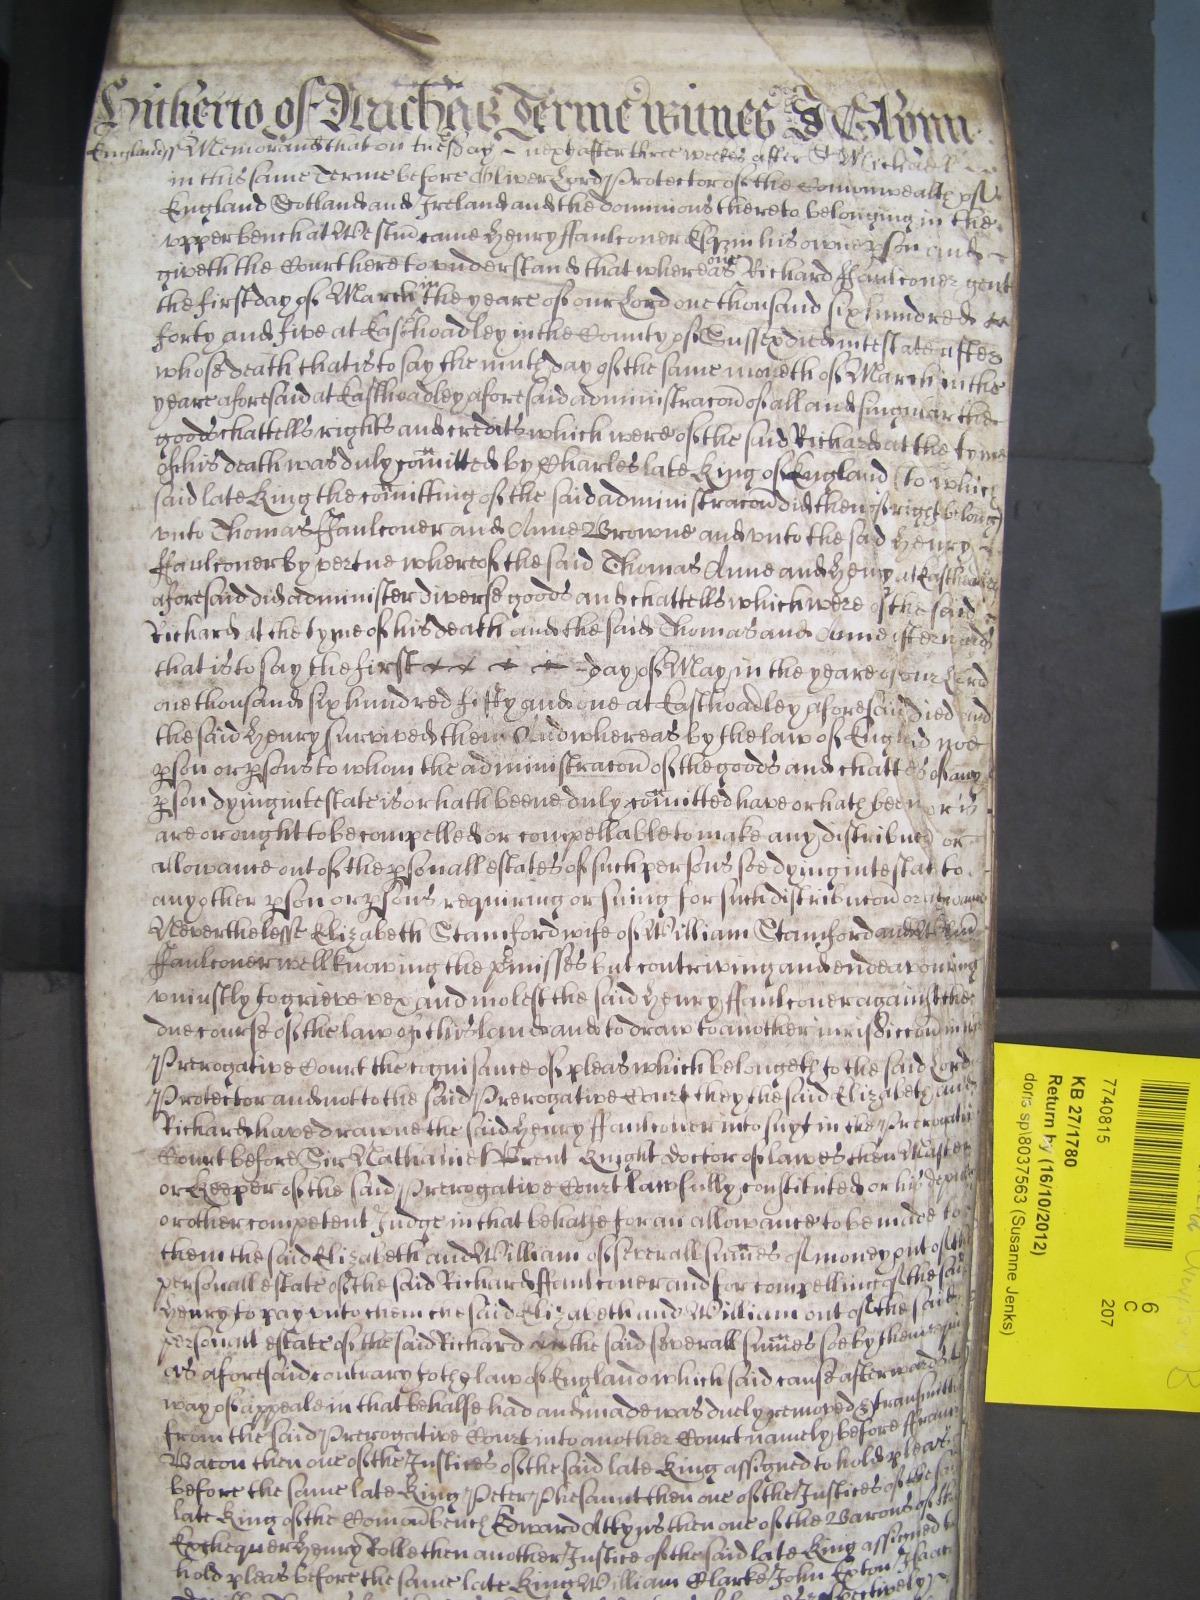 Hitherto of Michãs Terme witnes J Glynn
England ss Memorand that on Tuesday next after three weekes after St Michaell
in this same Terme before Oliver Lord Protector of the Comonwealth of
England Scotland and Ireland and the dominions thereto belonging in the
upper bench at Westm̃ came Henry ffaulconer Esqr in his owne pson and
giveth the Court here to understand that whereas one Richard ffaulconer gent
the first day of March in the yeare of our Lord one thousand six hundred
forty and five at Easthoadley in the County of Sussex died intestate after
whose death that is to say the ninth day of the same moneth of March in the
yeare aforesaid at Easthoadley aforesaid administracõn of all and singular the
goods chattells rights and credits which were of the said Richard at the tyme
of his death was duly comitted by Charles late King of England (to which
said late King the comitting of the said administracõn did then of right belong)
unto Thomas ffaulconer and Anne Browne and unto the said Henry
ffaulconer by vertue whereof the said Thomas Anne and Henry at Easthoadley
aforesaid did administer diverse goods and chattells which were of the said
Richard at the tyme of his death and the said Thomas and Anne afterwards
that is to say the first day of May in the yeare of our Lord
one thousand six hundred fifty and one at Easthoadley aforesaid died and
the said Henry survived them And whereas by the law of England noe
pson or psons to whom the administracõn of the goods and chattells of any
pson dying intestate is or hath beene duly comitted have or hath been or is
are or ought to be compelled or compellable to make any distribucõn or
allowance out of the psonall estates of such persons soe dying intestate to
any other pson or psons requiring or suing for such distribucõn or allowance
Neverthelesse Elizabeth Stamford wife of William Stamford and
ffaulconer well knowing the pmisses but contriving and endeavouring
uniustly to grieve vex and molest the said Henry ffaulconer against the
due course of the law of this land and to draw to another iurisdiccõn in the
Prerogative Court the cognisance of pleas which belongeth to the said Lord
Protector and not to the said Prerogative Court they the said Elizabeth and
Richard have drawne the said Henry ffaulconer into suyt in the Prerogative
Court before Sir Nathaniel Brent Knight doctor of lawes then Master
or Keeper of the said Prerogative Court lawfully constituted or his deputie
or other competent Judge in that behalfe for an allowance to be made to
them the said Elizabeth and William of severall sumes of money out of the
personall estate of the said Richard ffaulconer and for compelling of the said
Henry to pay unto them the said Elizabeth and William out of the said
personall estate of the said Richard the said severall sumes soe by them
as aforesaid contrary to the law of England which said cause afterwards by
way of appeale in that behalfe had and made was duely removed & transmitted
from the said Prerogative Court into another Court namely before ffrancis
Bacon then one of the Justices of the said late King assigned to hold pleas
before the same late King Peter Phesaunt then one of the Justices of the said
late King of the Comon bench Edward Atkyns then one of the Barons of the
Exchequer Henry Rolle then another Justice of the said late King assigned to
hold pleas before the same late King William Clarke John Exton Isaac
7740815
KB 27/1780
Return by (16/10/2012)
doris sp\8037563 (Susanne Jenks)
6
C
207